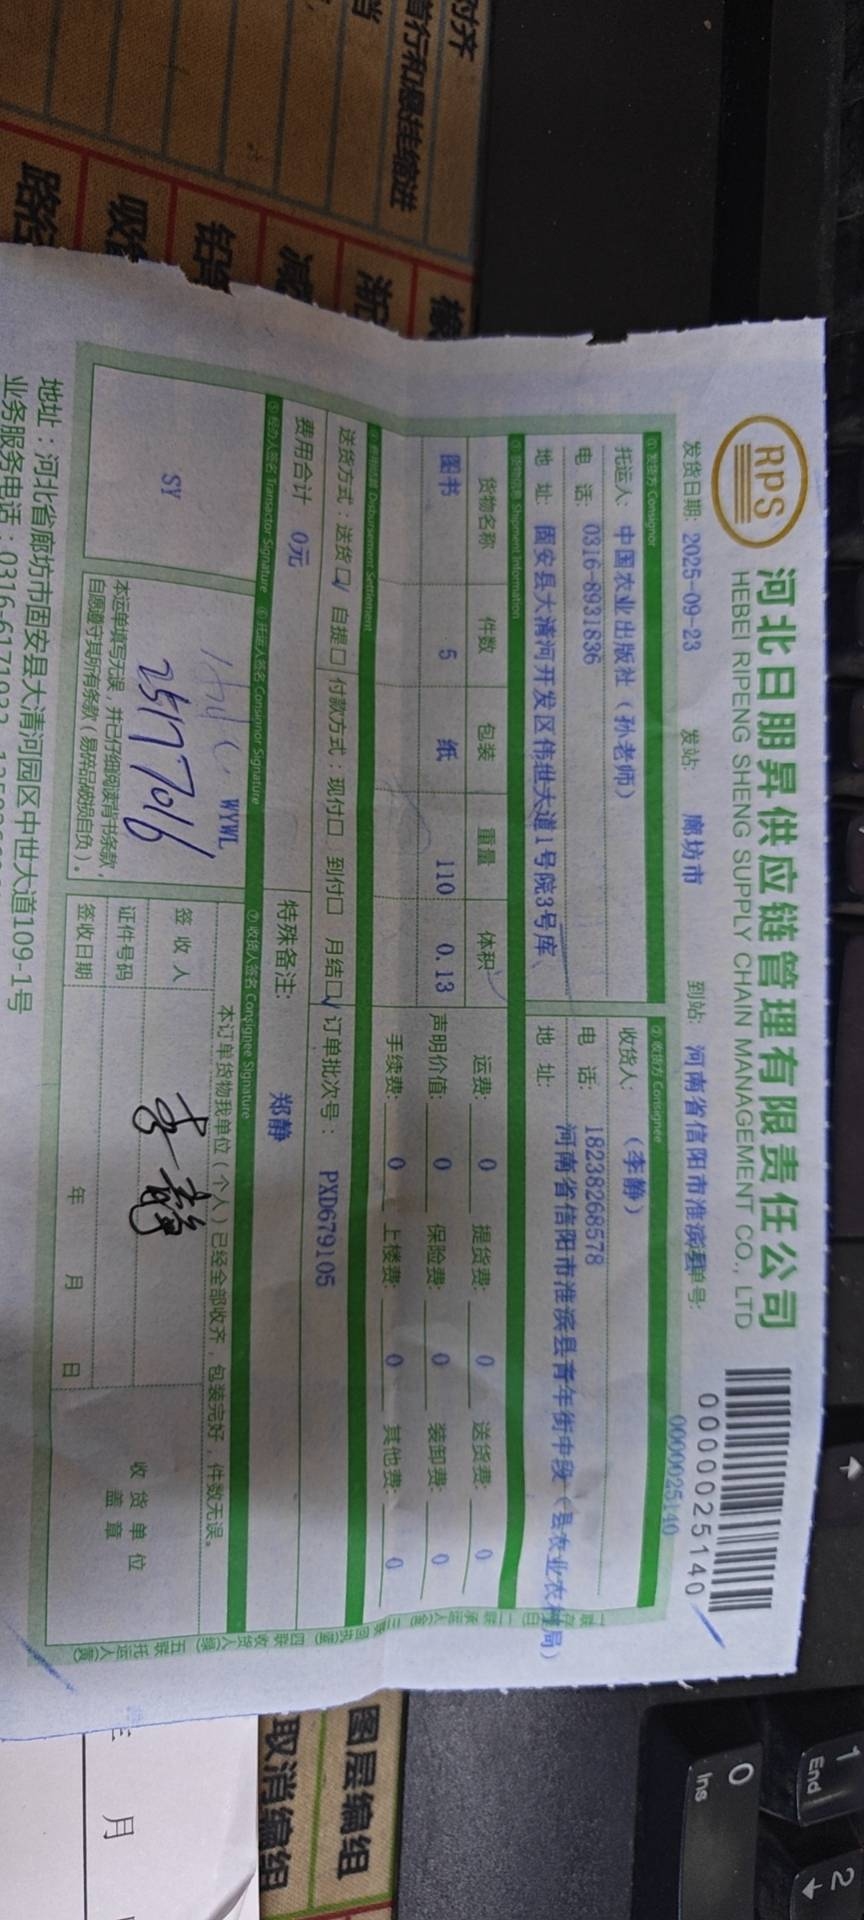 RPS
河北日朋昇供应链管理有限责任公司
HEBEI RIPENG SHENG SUPPLY CHAIN MANAGEMENT CO., LTD
0000025140
发货日期: 2025-09-23 发站: 廊坊市 到站: 河南省信阳市淮滨县 单号: 0000025140
① 发货方 Consignor
托运人: 中国农业出版社（孙老师）
电 话: 0316-8931836
地 址: 固安县大清河开发区伟世大道1号院3号库
② 收货方 Consignee
收货人: （李静）
电 话: 18238268578
地 址: 河南省信阳市淮滨县青年街中段（县农业农村局）
③ 货物信息 Shipment Information
货物名称 件数 包装 重量 体积
图书 5 纸 110 0.13
运费: 0 提货费: 0 送货费: 0
声明价值: 0 保险费: 0 装卸费: 0
手续费: 0 上楼费: 0 其他费: 0
④ 费用结算 Disbursement Settlement
送货方式：送货☑ 自提□ 付款方式：现付□ 到付□ 月结☑ 订单批次号： PXD679105
费用合计 0元 特殊备注: 郑静
⑤ 经办人签名 Transactor Signature ⑥ 托运人签名 Consignor Signature ⑦ 收货人签名 Consignee Signature
SY
WYWL
25177016
本运单填写无误，并已仔细阅读背书条款，
自愿遵守其所有条款（易碎品破损自负）。
本订单货物我单位（个人）已经全部收齐，包装完好，件数无误。
签收人 李静
证件号码
签收日期 年 月 日
收货单位
盖章
地址：河北省廊坊市固安县大清河园区中世大道109-1号
业务服务电话：0316-6171933
对齐
首行和悬挂缩进
图层编组
取消编组
月
1
End
0
Ins
2